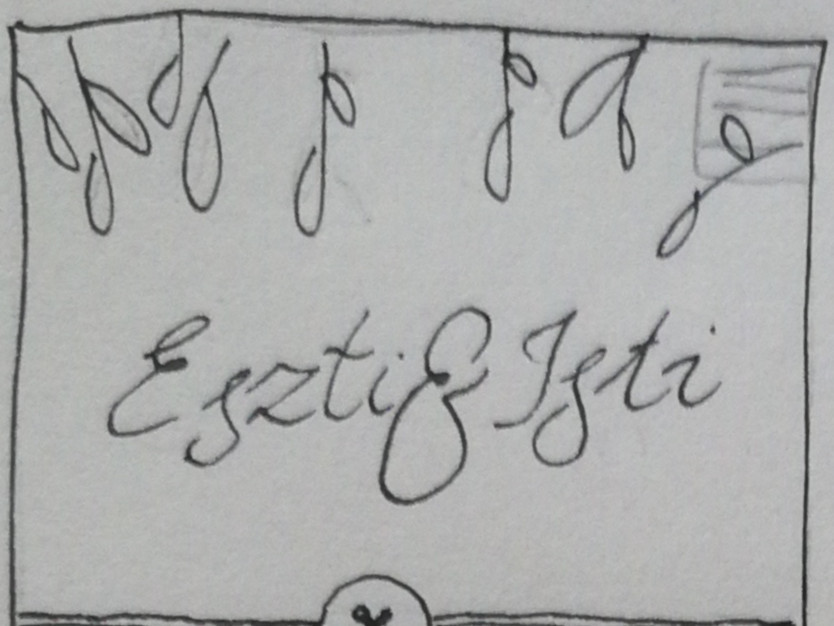 Eszti & Isti